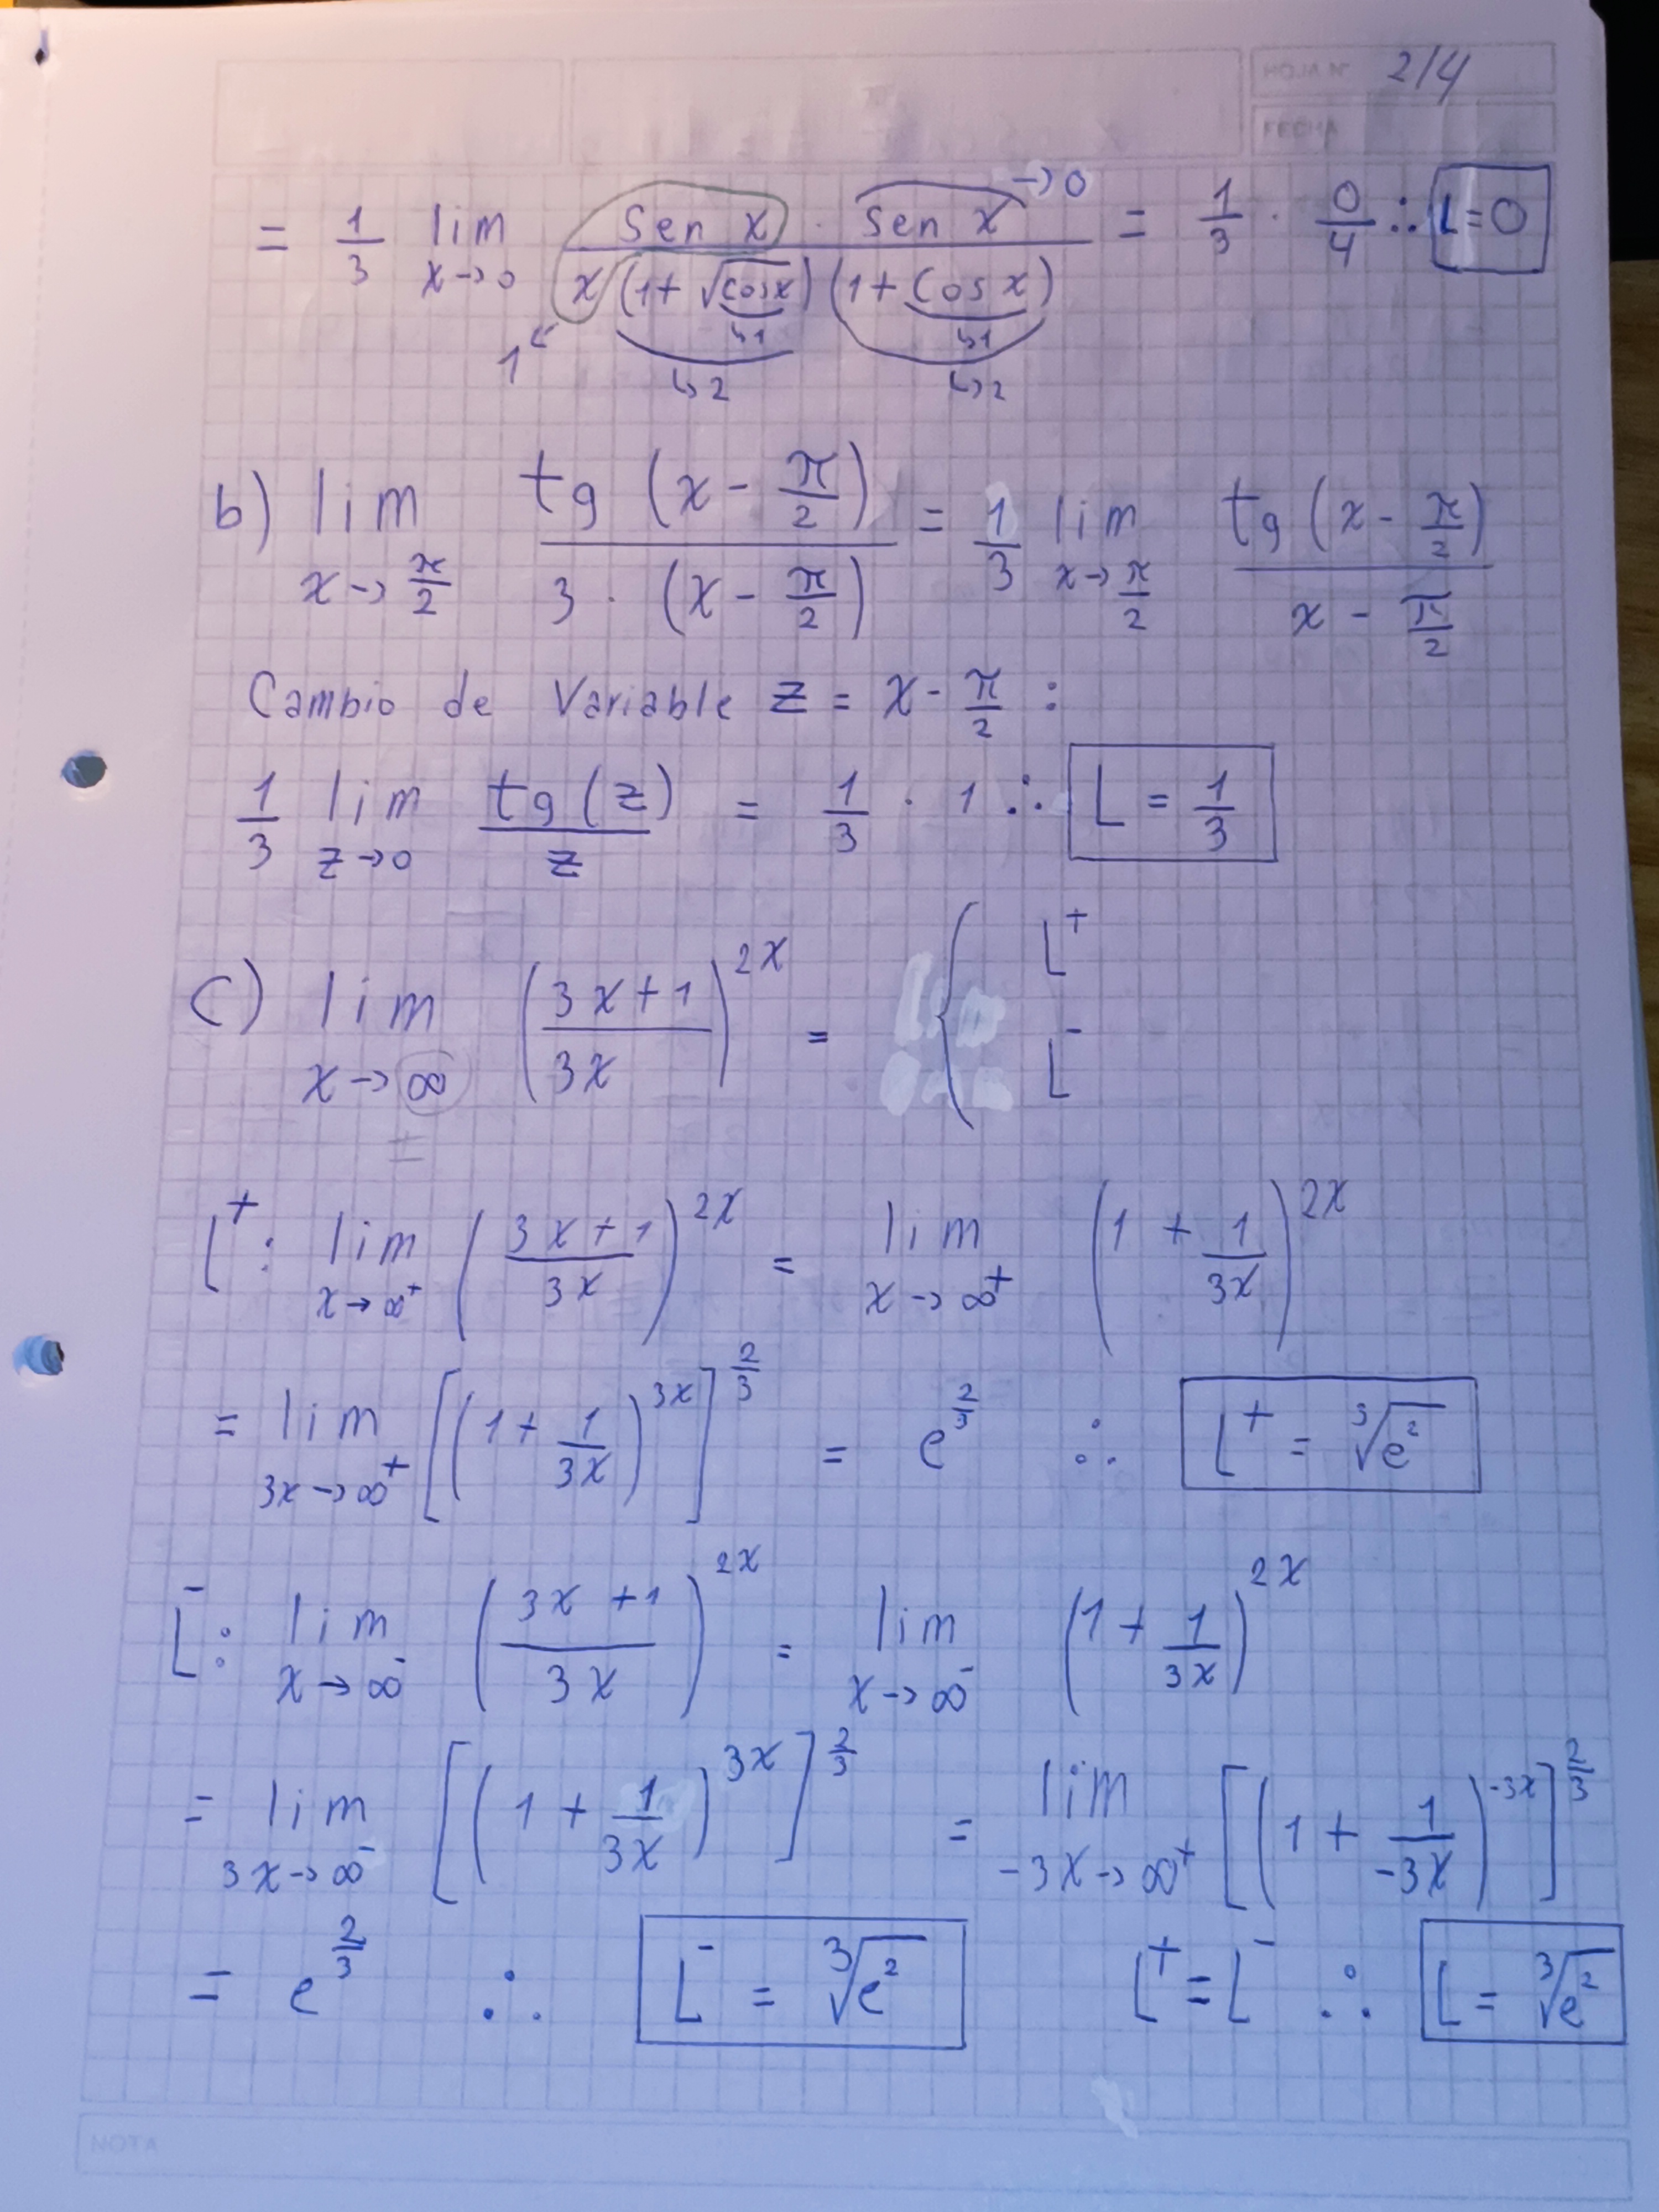 HOJA Nº 2/4
FECHA
= 1/3 lim x→0 (sen x · sen x →0) / (x (1+√cos x) (1+cos x)) = 1/3 · 0/4 ∴ L=0
1 ↳1 ↳1
↳2 ↳2
b) lim x→π/2 tg (x - π/2) / (3 · (x - π/2)) = 1/3 lim x→π/2 tg (x - π/2) / (x - π/2)
Cambio de Variable z = x - π/2 :
1/3 lim z→0 tg(z) / z = 1/3 · 1 ∴ L = 1/3
c) lim x→∞ ((3x+1)/3x)^2x = { L⁺ L⁻
L⁺: lim x→∞⁺ ((3x+1)/3x)^2x = lim x→∞⁺ (1 + 1/3x)^2x
= lim 3x→∞⁺ [(1 + 1/3x)^3x]^2/3 = e^2/3 ∴ L⁺ = ³√e²
L⁻: lim x→∞⁻ ((3x+1)/3x)^2x = lim x→∞⁻ (1 + 1/3x)^2x
= lim 3x→∞⁻ [(1 + 1/3x)^3x]^2/3 = lim -3x→∞⁺ [(1 + 1/-3x)^-3x]^2/3
= e^2/3 ∴ L⁻ = ³√e² L⁺ = L⁻ ∴ L = ³√e²
NOTA